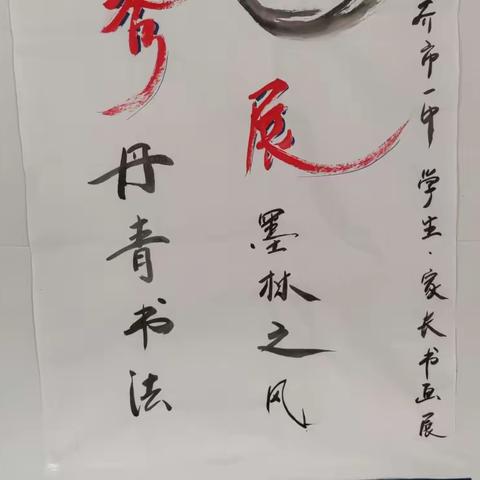 齐市一中 学生·家长书画展
展 墨林之风
秀 丹青书法